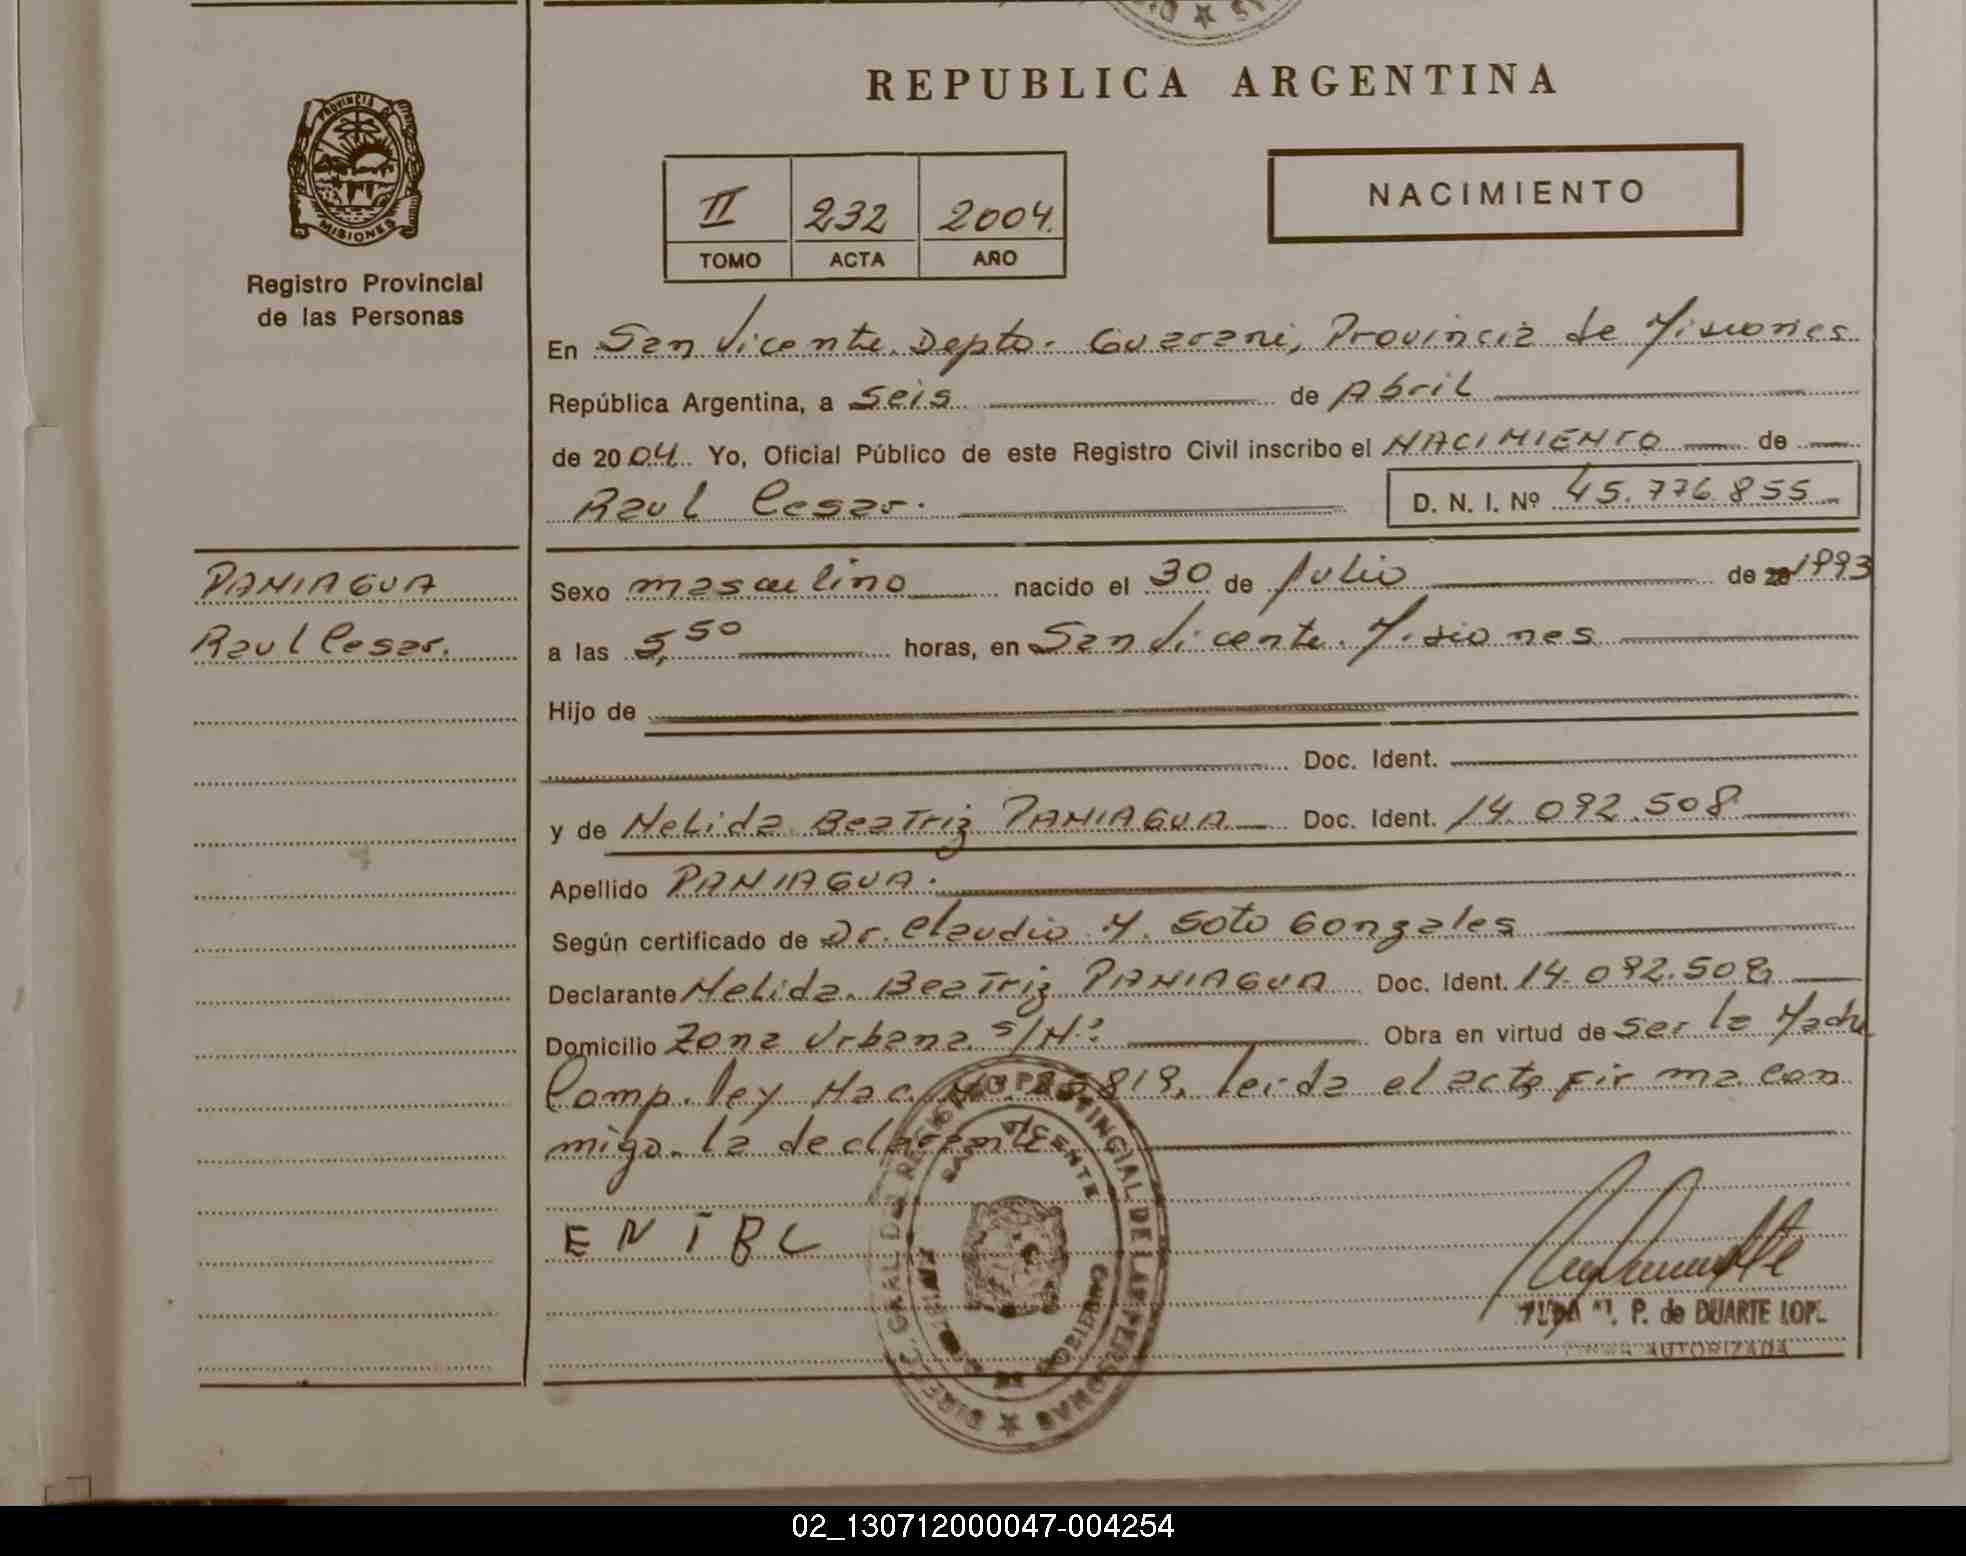 REPUBLICA ARGENTINA
PROVINCIA DE
MISIONES
Registro Provincial
de las Personas
II 232 2004.
TOMO ACTA AÑO
NACIMIENTO
En San Vicente. Depto. Guarani, Provincia de Misiones
República Argentina, a seis de Abril
de 2004. Yo, Oficial Público de este Registro Civil inscribo el NACIMIENTO de
Raul Cesar. D. N. I. Nº 45.776.855
PANIAGUA
Raul Cesar.
Sexo masculino nacido el 30 de Julio de 1993
a las 5,50 horas, en San Vicente. Misiones
Hijo de
Doc. Ident.
y de Nelida Beatriz PANIAGUA Doc. Ident. 14.092.508
Apellido PANIAGUA.
Según certificado de Dr. Claudio M. Soto Gonzales
Declarante Nelida. Beatriz PANIAGUA Doc. Ident. 14.092.508
Domicilio Zona Urbana s/Nº Obra en virtud de ser la Madre
Comp. ley Nac. Nº 25819, leida el acta firma con
migo. la declarante
SAN VICENTE
DE LAS PERSONAS
P. de DUARTE LOP
AUTORIZADA
02_130712000047-004254